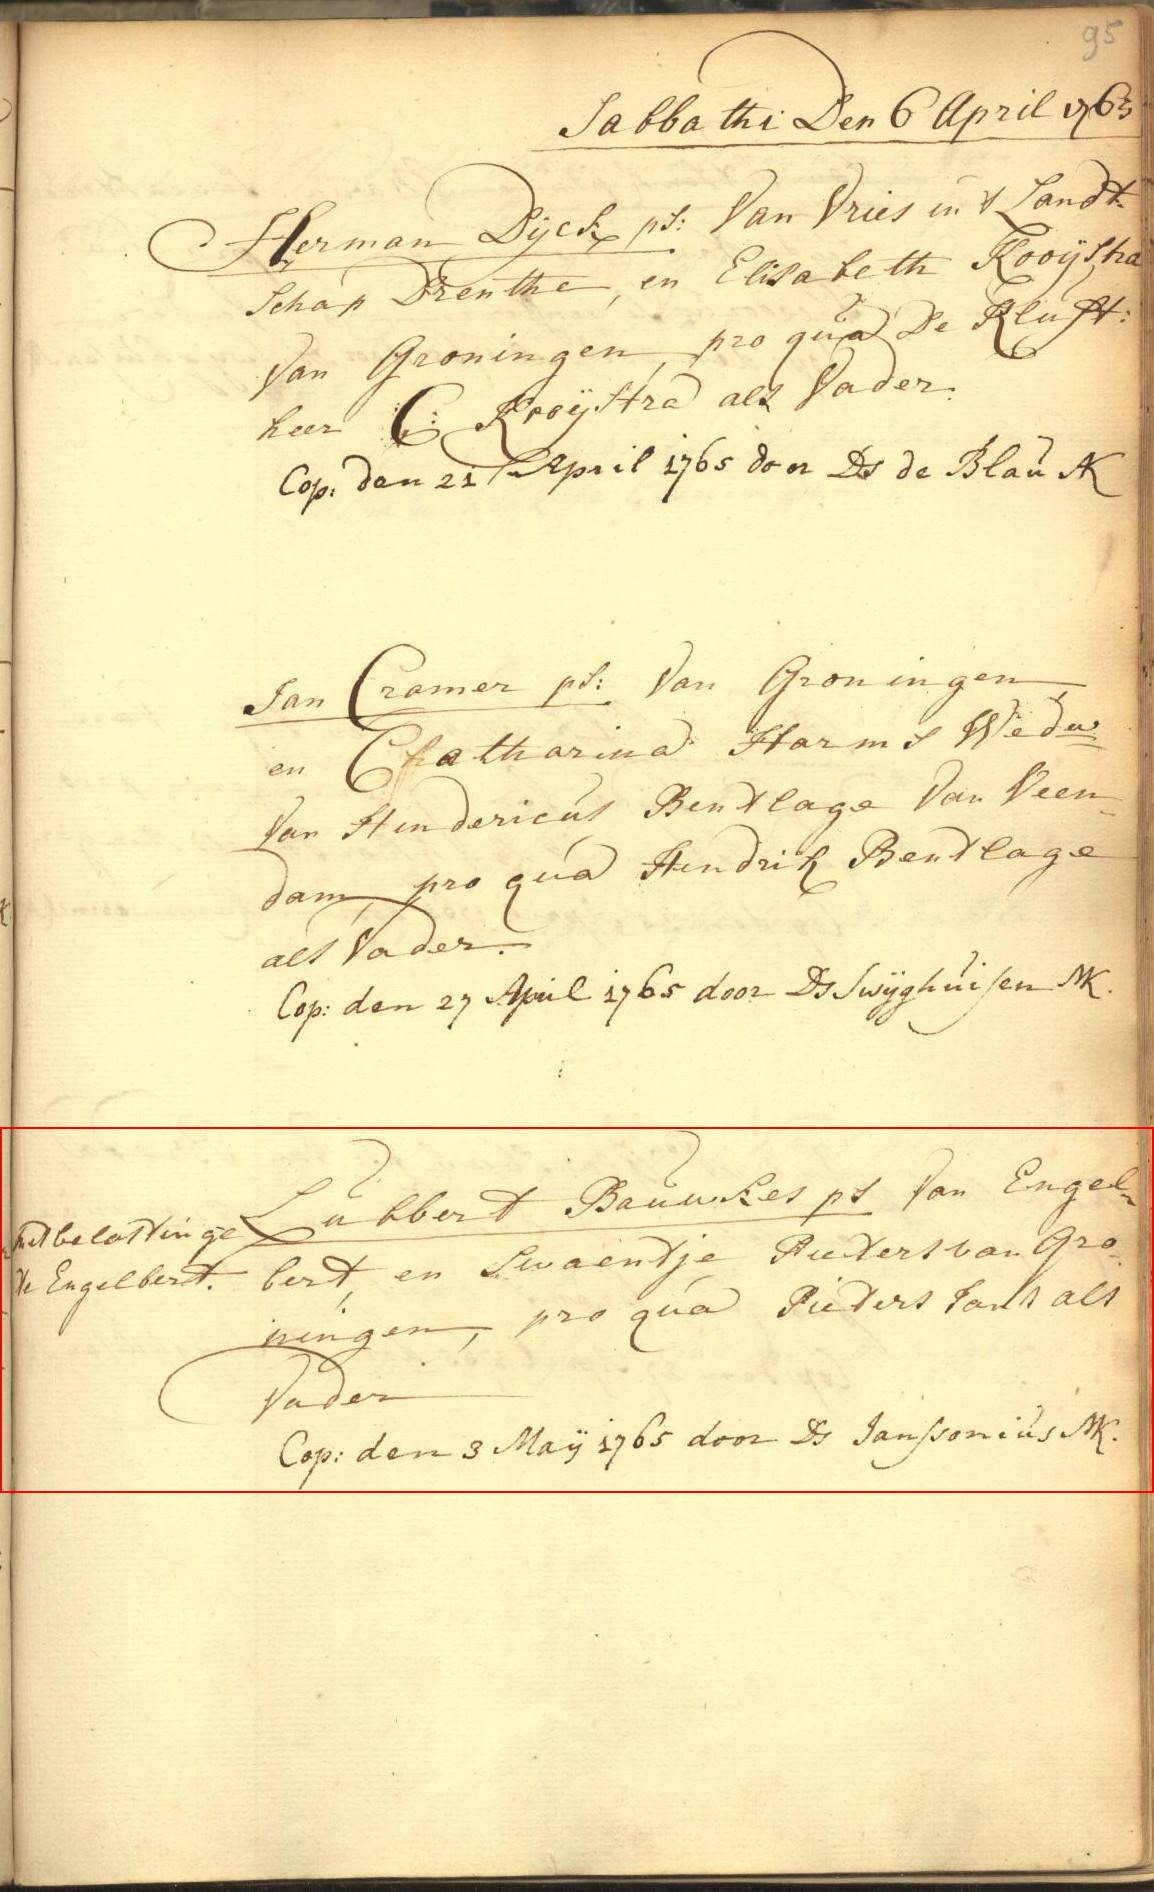 95
Sabbathi Den 6 April 1765
Herman Dijck ps: Van Vries in 't Landt-
schap Drenthe, en Elisabeth Kooijstra
Van Groningen, pro qua De Kluft:
heer C: Kooijstra als Vader.
Cop: den 21 April 1765 door Ds de Blau AK
Jan Cramer ps: Van Groningen
en Catharina Harms Wedw:
Van Hindericus Bentlage Van Veen-
dam, pro qua Hindrik Bentlage
als Vader.
Cop: den 27 April 1765 door Ds Swijghuisen MK.
Lubbert Bauwkes ps Van Engel-
met belastinge
bert, en Swaentje Pieters van Gro-
te Engelbert.
ningen, pro qua Pieters Jans als
Vader
Cop: den 3 Maij 1765 door Ds Janssonius MK.